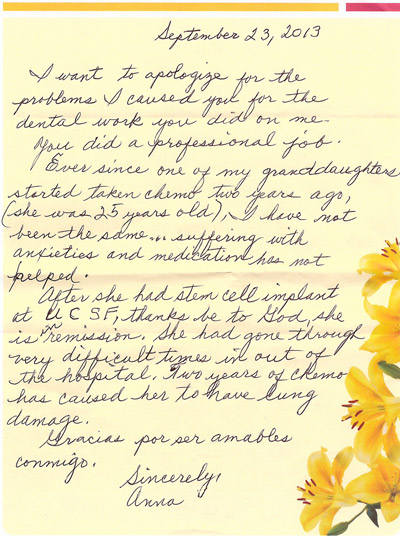 September 23, 2013
I want to apologize for the
problems I caused you for the
dental work you did on me.
You did a professional job.
Ever since one of my granddaughters
started taken chemo two years ago,
(she was 25 years old), I have not
been the same... suffering with
anxieties and medication has not
helped.
After she had stem cell implant
at UCSF, thanks be to God, she
is in remission. She had gone through
very difficult times in out of
the hospital. Two years of chemo
has caused her to have lung
damage.
Gracias por ser amables
conmigo.
Sincerely,
Anna